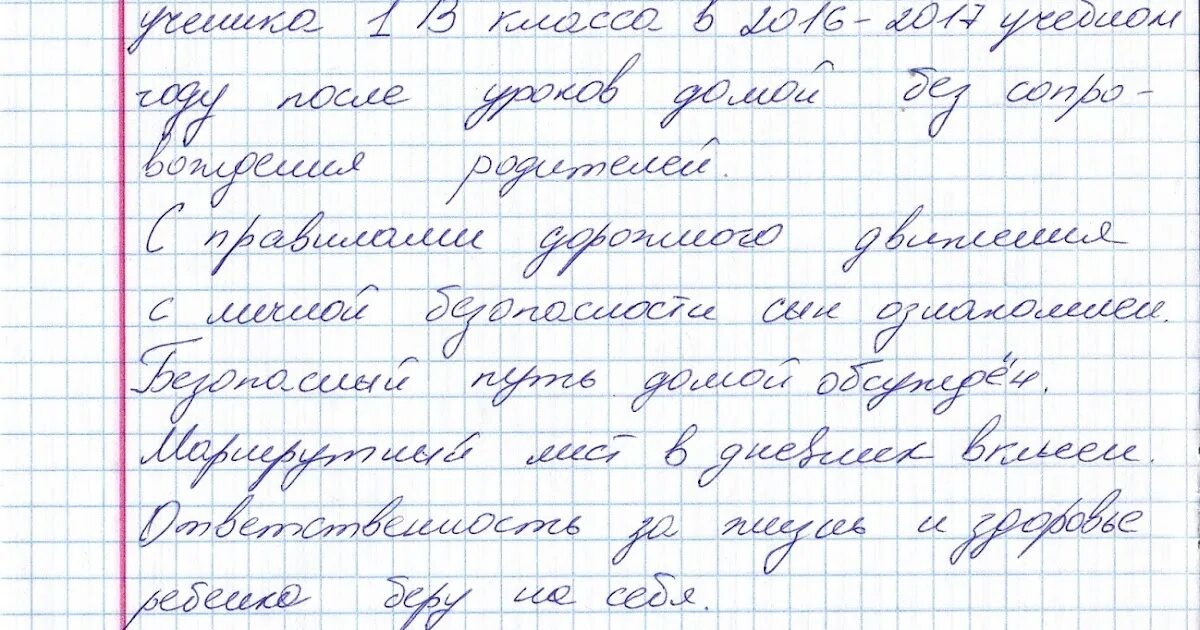 ученика 1 В класса в 2016-2017 учебном
году после уроков домой без сопро-
вождения родителей.
С правилами дорожного движения
с личной безопасности сын ознакомлен.
Безопасный путь домой обсуждён.
Маршрутный лист в дневник вклеен.
Ответственность за жизнь и здоровье
ребенка беру на себя.